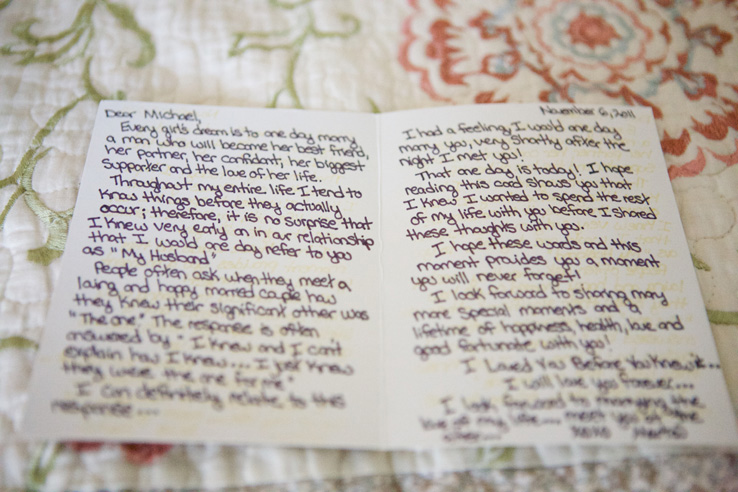 Dear Michael,
Every girl's dream is to one day marry
a man who will become her best friend,
her partner, her confidant, her biggest
supporter and the love of her life.
Throughout my entire life I tend to
know things before they actually
occur; therefore, it is no surprise that
I knew very early on in our relationship
that I would one day refer to you
as "My Husband".
People often ask when they meet a
loving and happy married couple how
they knew their significant other was
"The one". The response is often
answered by "I knew and I can't
explain how I knew... I just knew
they were the one for me"
I can definitely relate to this
response...
November 6, 2011
I had a feeling I would one day
marry you, very shortly after the
night I met you!
That one day is today! I hope
reading this card shows you that
I knew I wanted to spend the rest
of my life with you before I shared
these thoughts with you.
I hope these words and this
moment provides you a moment
you will never forget!
I look forward to sharing many
more special moments and a
lifetime of happiness, health, love and
good fortunate with you!
I Loved You Before You Knew it...
I will love you forever...
I look forward to marrying the
love of my life... meet you at the
XOXO